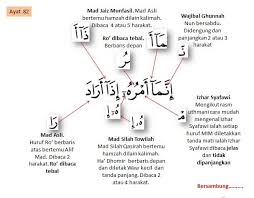 Ayat 82
Mad Jaiz Munfasil. Mad Asli
bertemu hamzah dilain kalimah.
Dibaca 4 atau 5 harakat.
Wajibal Ghunnah
Nun bersabdu.
Didengung dan
panjangkan 2 harakat
Ro' dibaca tebal.
Berbaris depan
مَاۤ أَ
نَّمَاۤ
رُ
إِنَّمَاۤ أَمْرُهُۥۤ إِذَاۤ أَرَادَ
رَا
هُۥۤ إِ
Izhar Syafawi
Mengikut rasm
uthmani cara mudah
mengenal Izhar
Syafawi ialah setiap
huruf MIM didapati
tanda mati ialah izhar
Syafawi dibaca jelas
dan tidak
dipanjangkan
Mad Asli.
Huruf Ro' berbaris
atas bertemu Alif
Mad. Dibaca 2
harakat. Ro' dibaca
tebal
Mad Silah Towilah
Mad Silah Qasirah bertemu
hamzah dilain kalimah.
Ha' Dhomir berbaris depan
dan diletak Waw kecil dan
tanda panjang. Dibaca 2
atau 4 harakat.
Bersambung.........